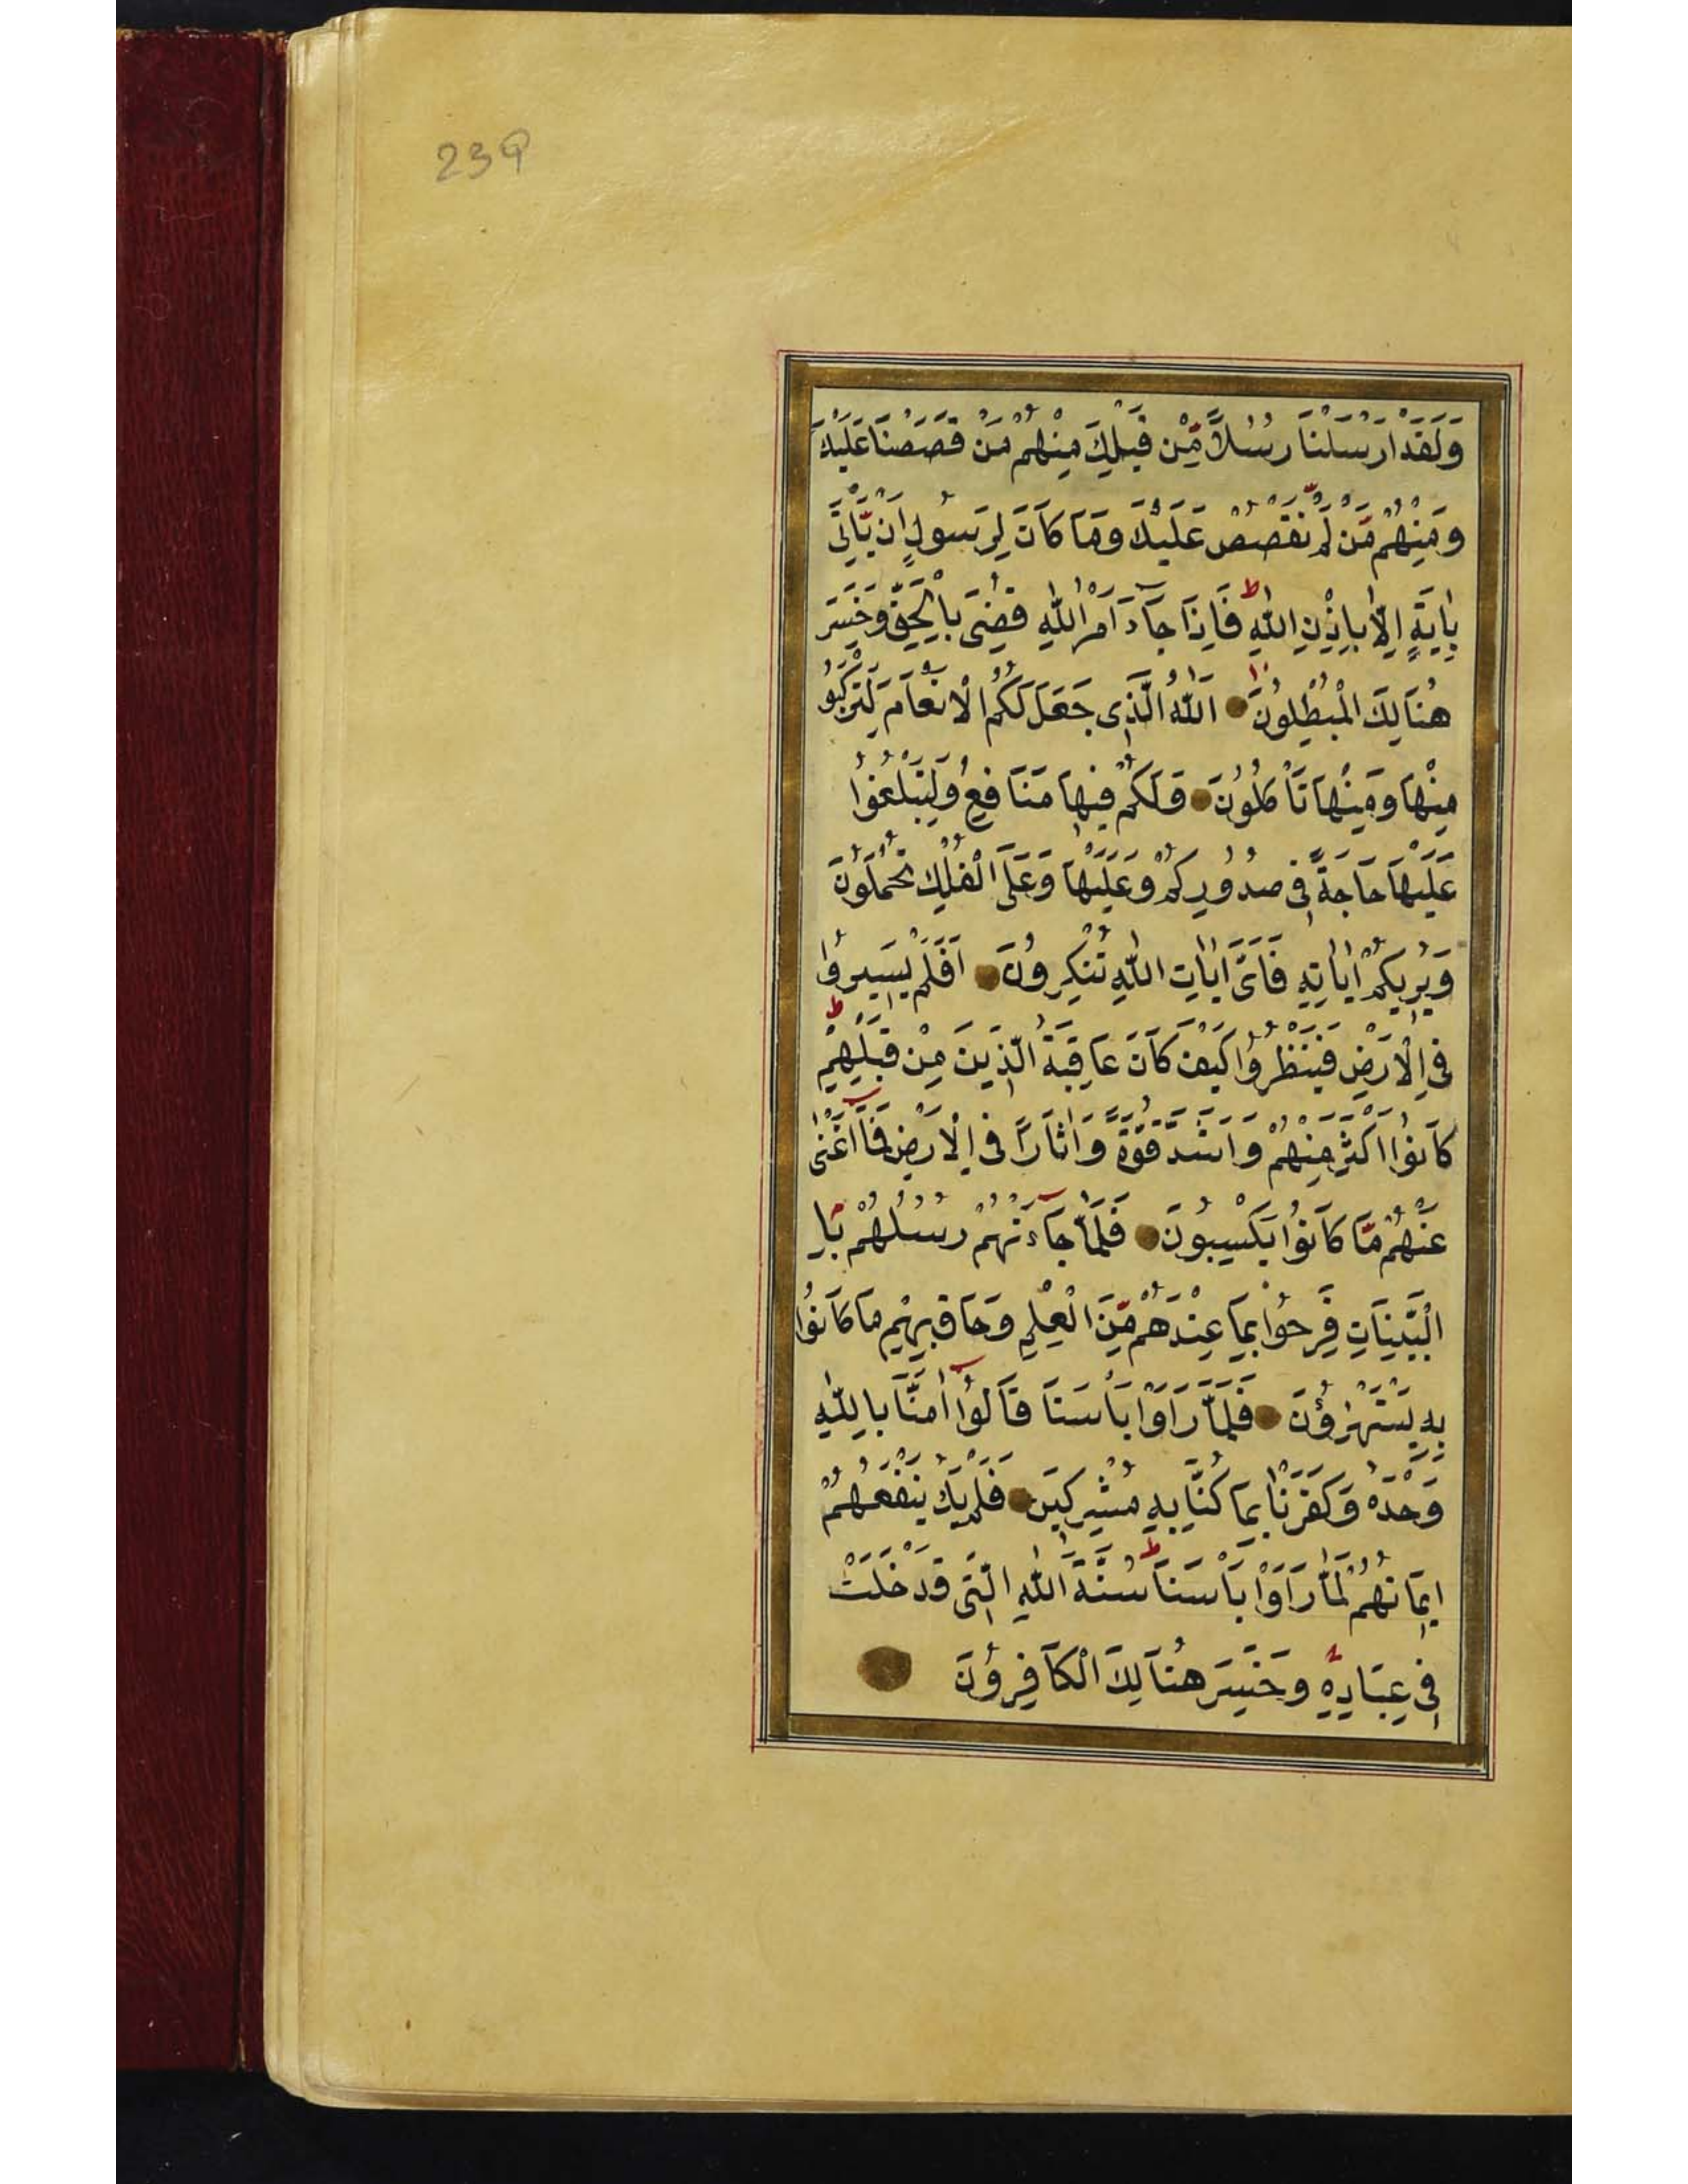 239
وَلَقَدْ اَرْسَلْنَا رُسُلًا مِّنْ قَبْلِكَ مِنْهُمْ مَنْ قَصَصْنَا عَلَيْكَ
وَمِنْهُمْ مَّنْ لَّمْ نَقْصُصْ عَلَيْكَ وَمَا كَانَ لِرَسُولٍ اَنْ يَّاْتِىَ
بِاٰيَةٍ اِلَّا بِاِذْنِ اللّٰهِ ط فَاِذَا جَآءَ اَمْرُ اللّٰهِ قُضِىَ بِالْحَقِّ وَخَسِرَ
هُنَالِكَ الْمُبْطِلُونَ اَللّٰهُ الَّذِى جَعَلَ لَكُمُ الْاَنْعَامَ لِتَرْكَبُوا
مِنْهَا وَمِنْهَا تَاْكُلُونَ وَلَكُمْ فِيهَا مَنَافِعُ وَلِتَبْلُغُوا
عَلَيْهَا حَاجَةً فِى صُدُورِكُمْ وَعَلَيْهَا وَعَلَى الْفُلْكِ تُحْمَلُونَ
وَيُرِيكُمْ اٰيَاتِهِ فَاَىَّ اٰيَاتِ اللّٰهِ تُنْكِرُونَ اَفَلَمْ يَسِيرُوا
فِى الْاَرْضِ فَيَنْظُرُوا كَيْفَ كَانَ عَاقِبَةُ الَّذِينَ مِنْ قَبْلِهِمْ ط
كَانُوا اَكْثَرَ مِنْهُمْ وَاَشَدَّ قُوَّةً وَّاٰثَارًا فِى الْاَرْضِ فَمَآ اَغْنٰى
عَنْهُمْ مَّا كَانُوا يَكْسِبُونَ فَلَمَّا جَآءَتْهُمْ رُسُلُهُمْ بِا
الْبَيِّنَاتِ فَرِحُوا بِمَا عِنْدَهُمْ مِّنَ الْعِلْمِ وَحَاقَ بِهِمْ مَا كَانُوا
بِهِ يَسْتَهْزِؤُنَ فَلَمَّا رَاَوْا بَاْسَنَا قَالُوآ اٰمَنَّا بِاللّٰهِ
وَحْدَهُ وَكَفَرْنَا بِمَا كُنَّا بِهِ مُشْرِكِينَ فَلَمْ يَكُ يَنْفَعُهُمْ
اِيمَانُهُمْ لَمَّا رَاَوْا بَاْسَنَا ط سُنَّةَ اللّٰهِ الَّتِى قَدْ خَلَتْ
فِى عِبَادِهِ وَخَسِرَ هُنَالِكَ الْكَافِرُونَ